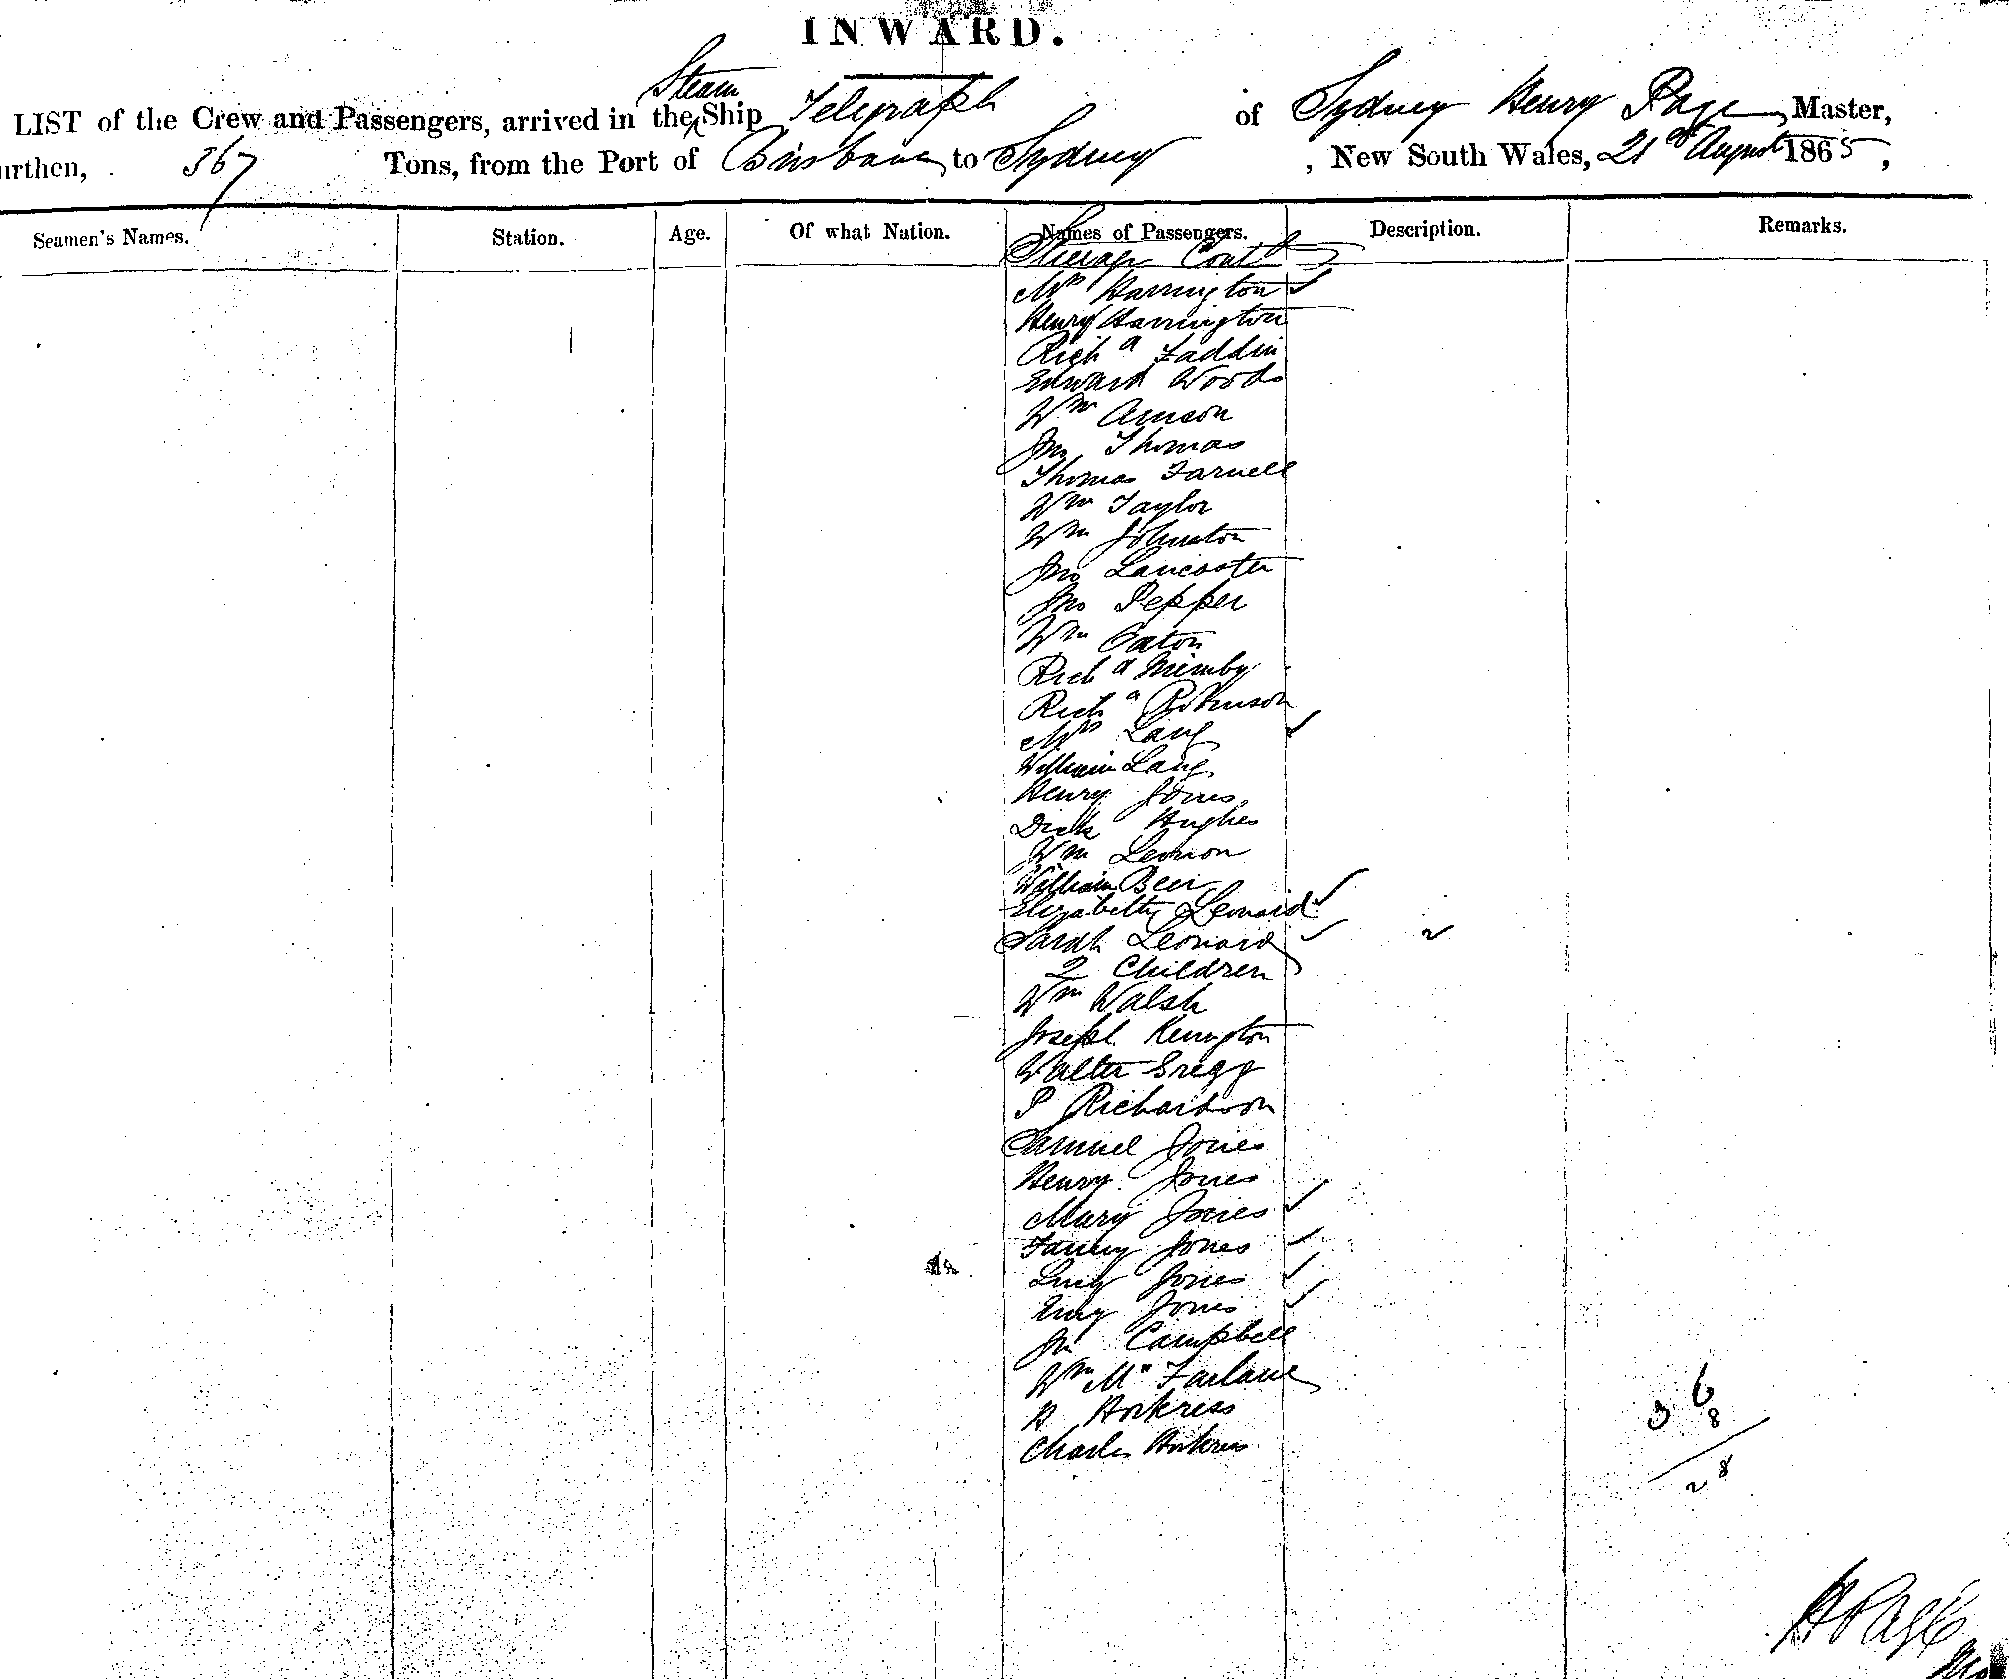 INWARD.
Steam
LIST of the Crew and Passengers, arrived in the Ship Telegraph of Sydney Henry Page, Master,
urthen, 367 Tons, from the Port of Brisbane to Sydney, New South Wales, 21st August 1865,
Seamen's Names. Station. Age. Of what Nation. Names of Passengers. Description. Remarks.
Steerage Contd
Mrs Harrington
Henry Harrington
Richd Faddin
Edward Woods
Wm
Jno Thomas
Thomas Farnell
Wm Taylor
Wm Johnston
Jno Lancaster
Jno Pepper
Wm Eaton
Richd
Richd Robinson
Mrs Lang
William Lang
Henry Jones
Dick Hughes
Wm Lennon
William Beer
Elizabeth Leonard
Sarah Leonard
2 Children
Wm Walsh
Joseph Kennyton
Walter Gregg
P Richardson
Samuel Jones
Henry Jones
Mary Jones
Fanny Jones
Lucy Jones
Emy Jones
Jno Campbell
Wm Mc Farlane
H Horkress
Charles Horkress
36
8
28
H Page